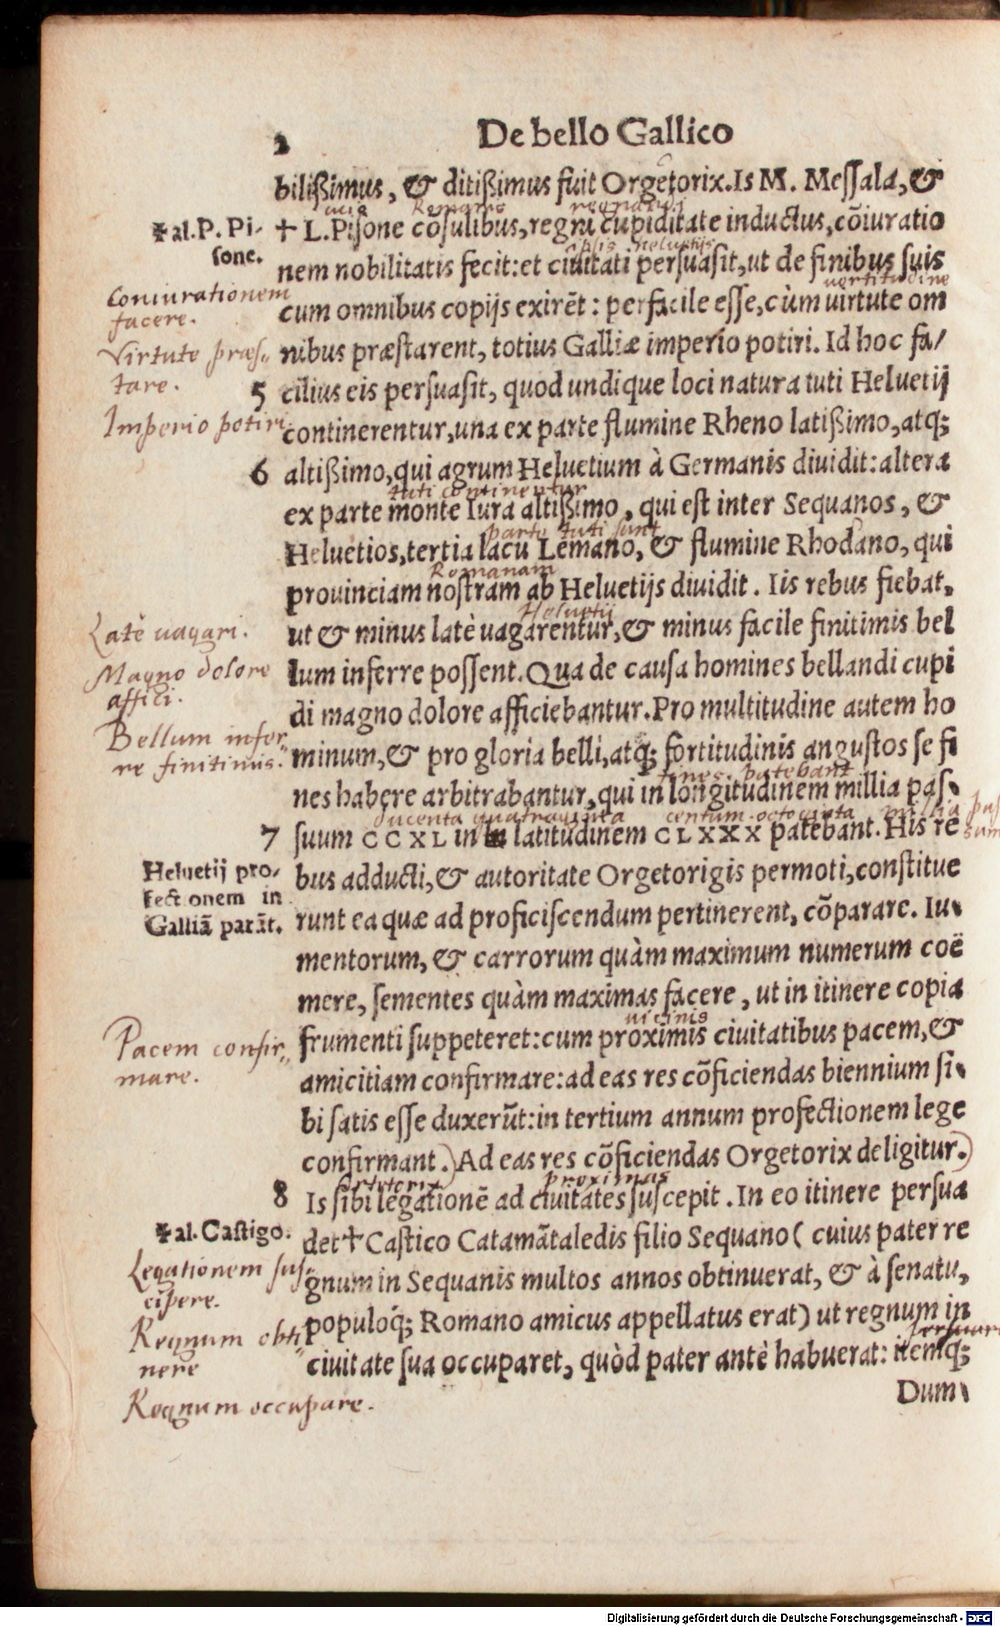 2 De bello Gallico
bilißimus, & ditißimus fuit Orgetorix. Is M. Meſſala, &
Romano regnandi
✝ al. P. Pi-
ſone.
✝ L. Piſone cõſulibus, regni cupiditate inductus, cõiuratio
ipſis Heluetijs
nem nobilitatis fecit: et ciuitati perſuaſit, ut de finibus ſuis
Coniurationem
facere.
cum omnibus copijs exirẽt: perfacile eſſe, cùm uirtute om
Virtute præſ-
tare.
nibus præſtarent, totius Galliæ imperio potiri. Id hoc fa/
5 cilius eis perſuaſit, quod undique loci natura tuti Heluetij
Imperio potiri
continerentur, una ex parte flumine Rheno latißimo, atq;
6 altißimo, qui agrum Heluetium à Germanis diuidit: altera
tuti continentur
ex parte monte Iura altißimo, qui eſt inter Sequanos, &
parte tuti sunt
Heluetios, tertia lacu Lemano, & flumine Rhodano, qui
Romanam
prouinciam noſtram ab Heluetijs diuidit. Iis rebus fiebat,
Heluetij
Latè uagari.
ut & minus latè uagarentur, & minus facile finitimis bel
Magno dolore
affici.
lum inferre poſſent. Qua de cauſa homines bellandi cupi
di magno dolore afficiebantur. Pro multitudine autem ho
Bellum infer-
re finitimis.
minum, & pro gloria belli, atq; fortitudinis anguſtos ſe fi
fines patebant
nes habere arbitrabantur, qui in longitudinem millia paſ-
ducenta quatraginta centum octoginta millia paſ
suum
7 ſuum CCXL in latitudinem CLXXX patebant. His re
Heluetij pro-
fectionem in
Galliã parãt.
bus adducti, & autoritate Orgetorigis permoti, conſtitue
runt ea quæ ad proficiſcendum pertinerent, cõparare. Iu-
mentorum, & carrorum quàm maximum numerum coë
mere, ſementes quàm maximas facere, ut in itinere copia
uicinis
Pacem confir-
mare.
frumenti ſuppeteret: cum proximis ciuitatibus pacem, &
amicitiam confirmare: ad eas res cõficiendas biennium ſi-
bi ſatis eſſe duxerũt: in tertium annum profectionem lege
confirmant.) Ad eas res cõficiendas Orgetorix deligitur.)
proximas
8 Is ſibi legationẽ ad ciuitates ſuſcepit. In eo itinere perſua
✝ al. Caſtigo.
det ✝ Caſtico Catamãtaledis filio Sequano (cuius pater re
Legationem ſuſ-
cipere.
gnum in Sequanis multos annos obtinuerat, & à ſenatu,
populoq́; Romano amicus appellatus erat) ut regnum in
Regnum obti-
nere
ciuitate ſua occuparet, quòd pater antè habuerat: itemq́;
Regnum occupare.
Dum-
Digitalisierung gefördert durch die Deutsche Forschungsgemeinschaft - DFG